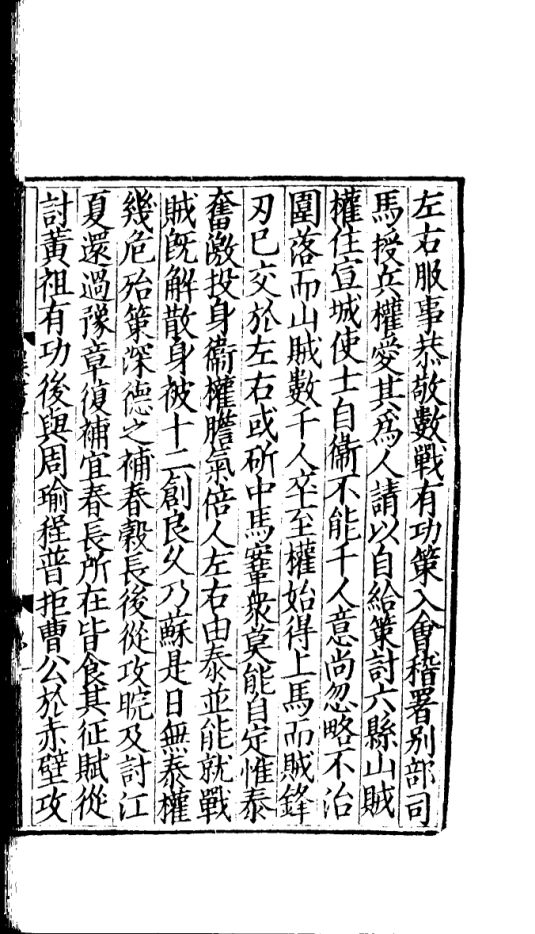 左右服事恭敬數戰有功策入會稽署別部司
馬授兵權愛其爲人請以自給策討六縣山賊
權住宣城使士自衞不能千人意尚忽略不治
圍落而山賊數千人卒至權始得上馬而賊鋒
刃已交於左右或斫中馬鞌衆莫能自定惟泰
奮激投身衞權膽氣倍人左右由泰並能就戰
賊旣解散身被十二創良乆乃蘇是日無泰權
幾危殆策深德之補春穀長後從攻皖及討江
夏還過豫章復補宜春長所在皆食其征賦從
討黃祖有功後與周瑜程普拒曹公於赤壁攻